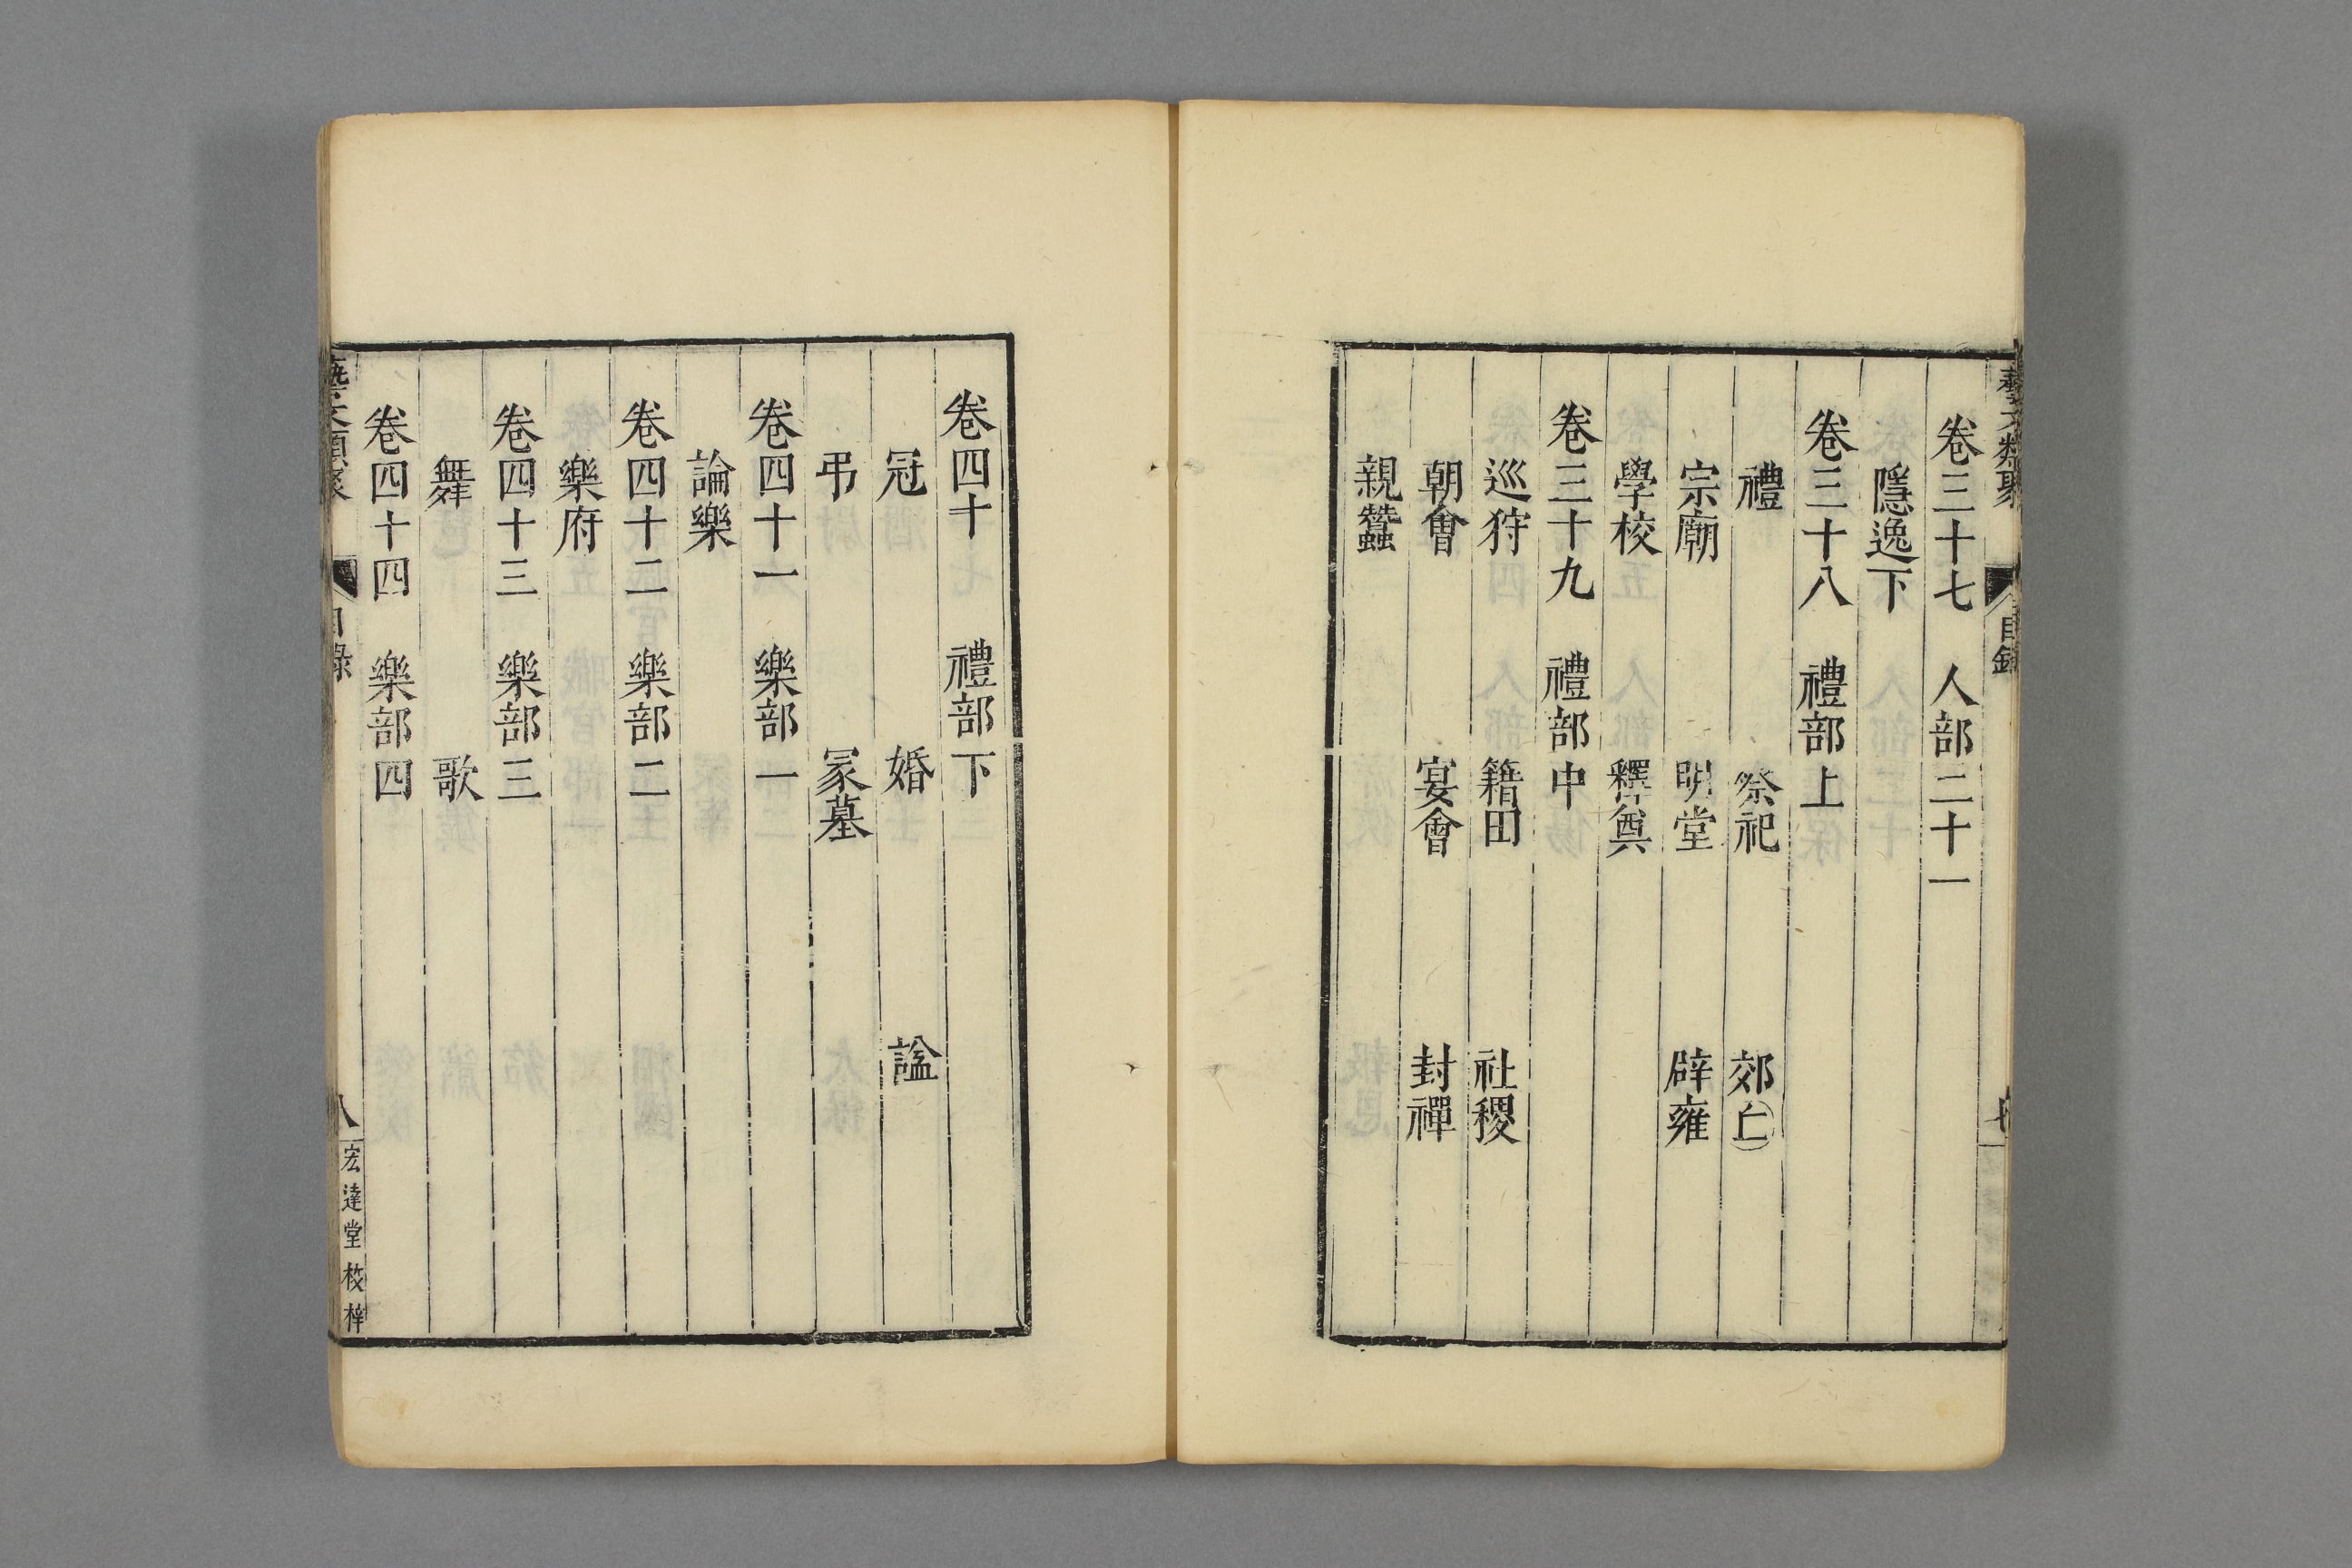 藝文類聚 目錄 七
卷三十七 人部二十一
隱逸下
卷三十八 禮部上
禮 祭祀 郊㐀
宗廟 明堂 辟雍
學校 釋奠
卷三十九 禮部中
巡狩 籍田 社稷
朝會 宴會 封禪
親蠶
卷四十 禮部下
冠 婚 謚
弔 冢墓
卷四十一 樂部一
論樂
卷四十二 樂部二
樂府
卷四十三 樂部三
舞 歌
卷四十四 樂部四
藝文類聚 目錄 八 宏達堂校梓